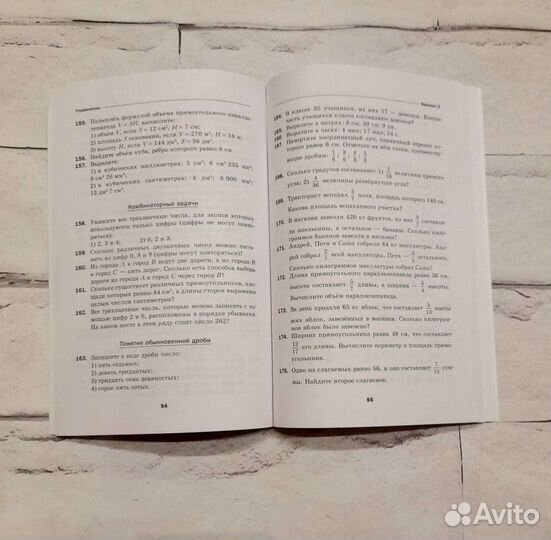 Упражнения
155. Пользуясь формулой объёма прямоугольного паралле-
лепипеда V = SH, вычислите:
1) объём V, если S = 12 см², H = 7 см;
2) площадь S основания, если V = 270 м³, H = 18 м;
3) высоту H, если V = 144 дм³, S = 36 дм².
156. Найдите объём куба, ребро которого равно 6 см.
157. Выразите:
1) в кубических миллиметрах: 5 см³; 6 см³ 235 мм³;
8 см³ 26 мм³;
2) в кубических сантиметрах: 4 дм³; 6 000 мм³;
Комбинаторные задачи
158. Укажите все трёхзначные числа, для записи которых
используются только цифры (цифры не могут повто-
риться):
1) 2, 3 и 4; 2) 0, 2 и 3.
159. Сколько различных двузначных чисел можно соста-
вить из цифр 0, 8 и 9 (цифры могут повторяться)?
160. Из города A в город B ведут две дороги, а из города B
в город C — пять дорог. Сколько есть способов выбора
дороги из города A в город C через город B?
161. Сколько существует различных прямоугольников, пло-
щади которых равны 44 см², а длины сторон выражены
целым числом сантиметров?
162. Все трёхзначные числа, которые можно записать с по-
мощью цифр 2 и 6, расположены в порядке убывания.
На каком месте в этом ряду стоит число 262?
Понятие обыкновенной дроби
163. Запишите в виде дроби число:
1) пять седьмых;
2) девять тридцатых;
3) тридцать семь девяностых;
4) сорок пять сотых.
54
Вариант 2
164. В классе 35 учащихся, из них 17 — девочки. Какую
часть учащихся класса составляют девочки?
165. Выразите в метрах: 8 см; 39 см; 9 дм.
166. Выразите в часах: 4 мин; 17 мин; 54 с.
167. Начертите координатный луч, единичный отрезок ко-
торого равен 6 см. Отметьте на нём точки, соответству-
ющие дробям:
168. Сколько градусов составляют: 1) величины прямого
угла; 2) 4/36 величины развёрнутого угла?
169. Тракторист вспахал поля, площадь которого 140 га.
Какова площадь вспаханного участка?
170. В магазин завезли 420 кг фруктов, из них 3/7 составля-
ют апельсины, а остальное — бананы. Сколько кило-
граммов бананов завезли в магазин?
171. Андрей, Петя и Саша собрали 84 кг макулатуры. Ан-
дрей собрал всей макулатуры, Петя — остального.
Сколько килограммов макулатуры собрал Саша?
172. Длина прямоугольного параллелепипеда равна 56 см,
высота составляет длины, а ширина — высоты.
Вычислите объём параллелепипеда.
173. За день продали 65 кг яблок, что составляет 5/13 массы
всех яблок, завезённых в магазин. Сколько килограм-
мов яблок было завезено?
174. Ширина прямоугольника равна 48 см, что составляет
12/17 его длины. Вычислите периметр и площадь прямо-
угольника.
175. Одно из слагаемых равно 56, и оно составляет 7/15 сум-
мы. Найдите второе слагаемое.
55
Avito